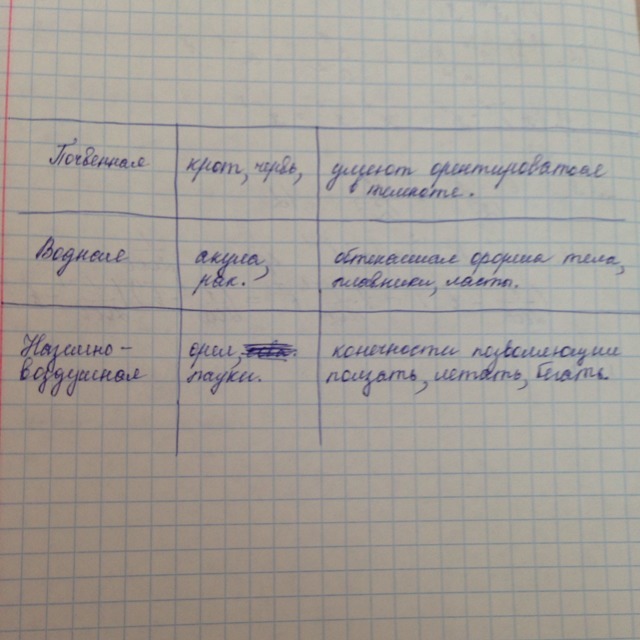 Почвенная крот, червь, умеют орентироваться
темноте.
Водная акула, обтекаемая форма тела,
рак. плавники, ласты.
Наземно- орел, конечности позволяющие
воздушная пауки. ползать, летать, бегать.